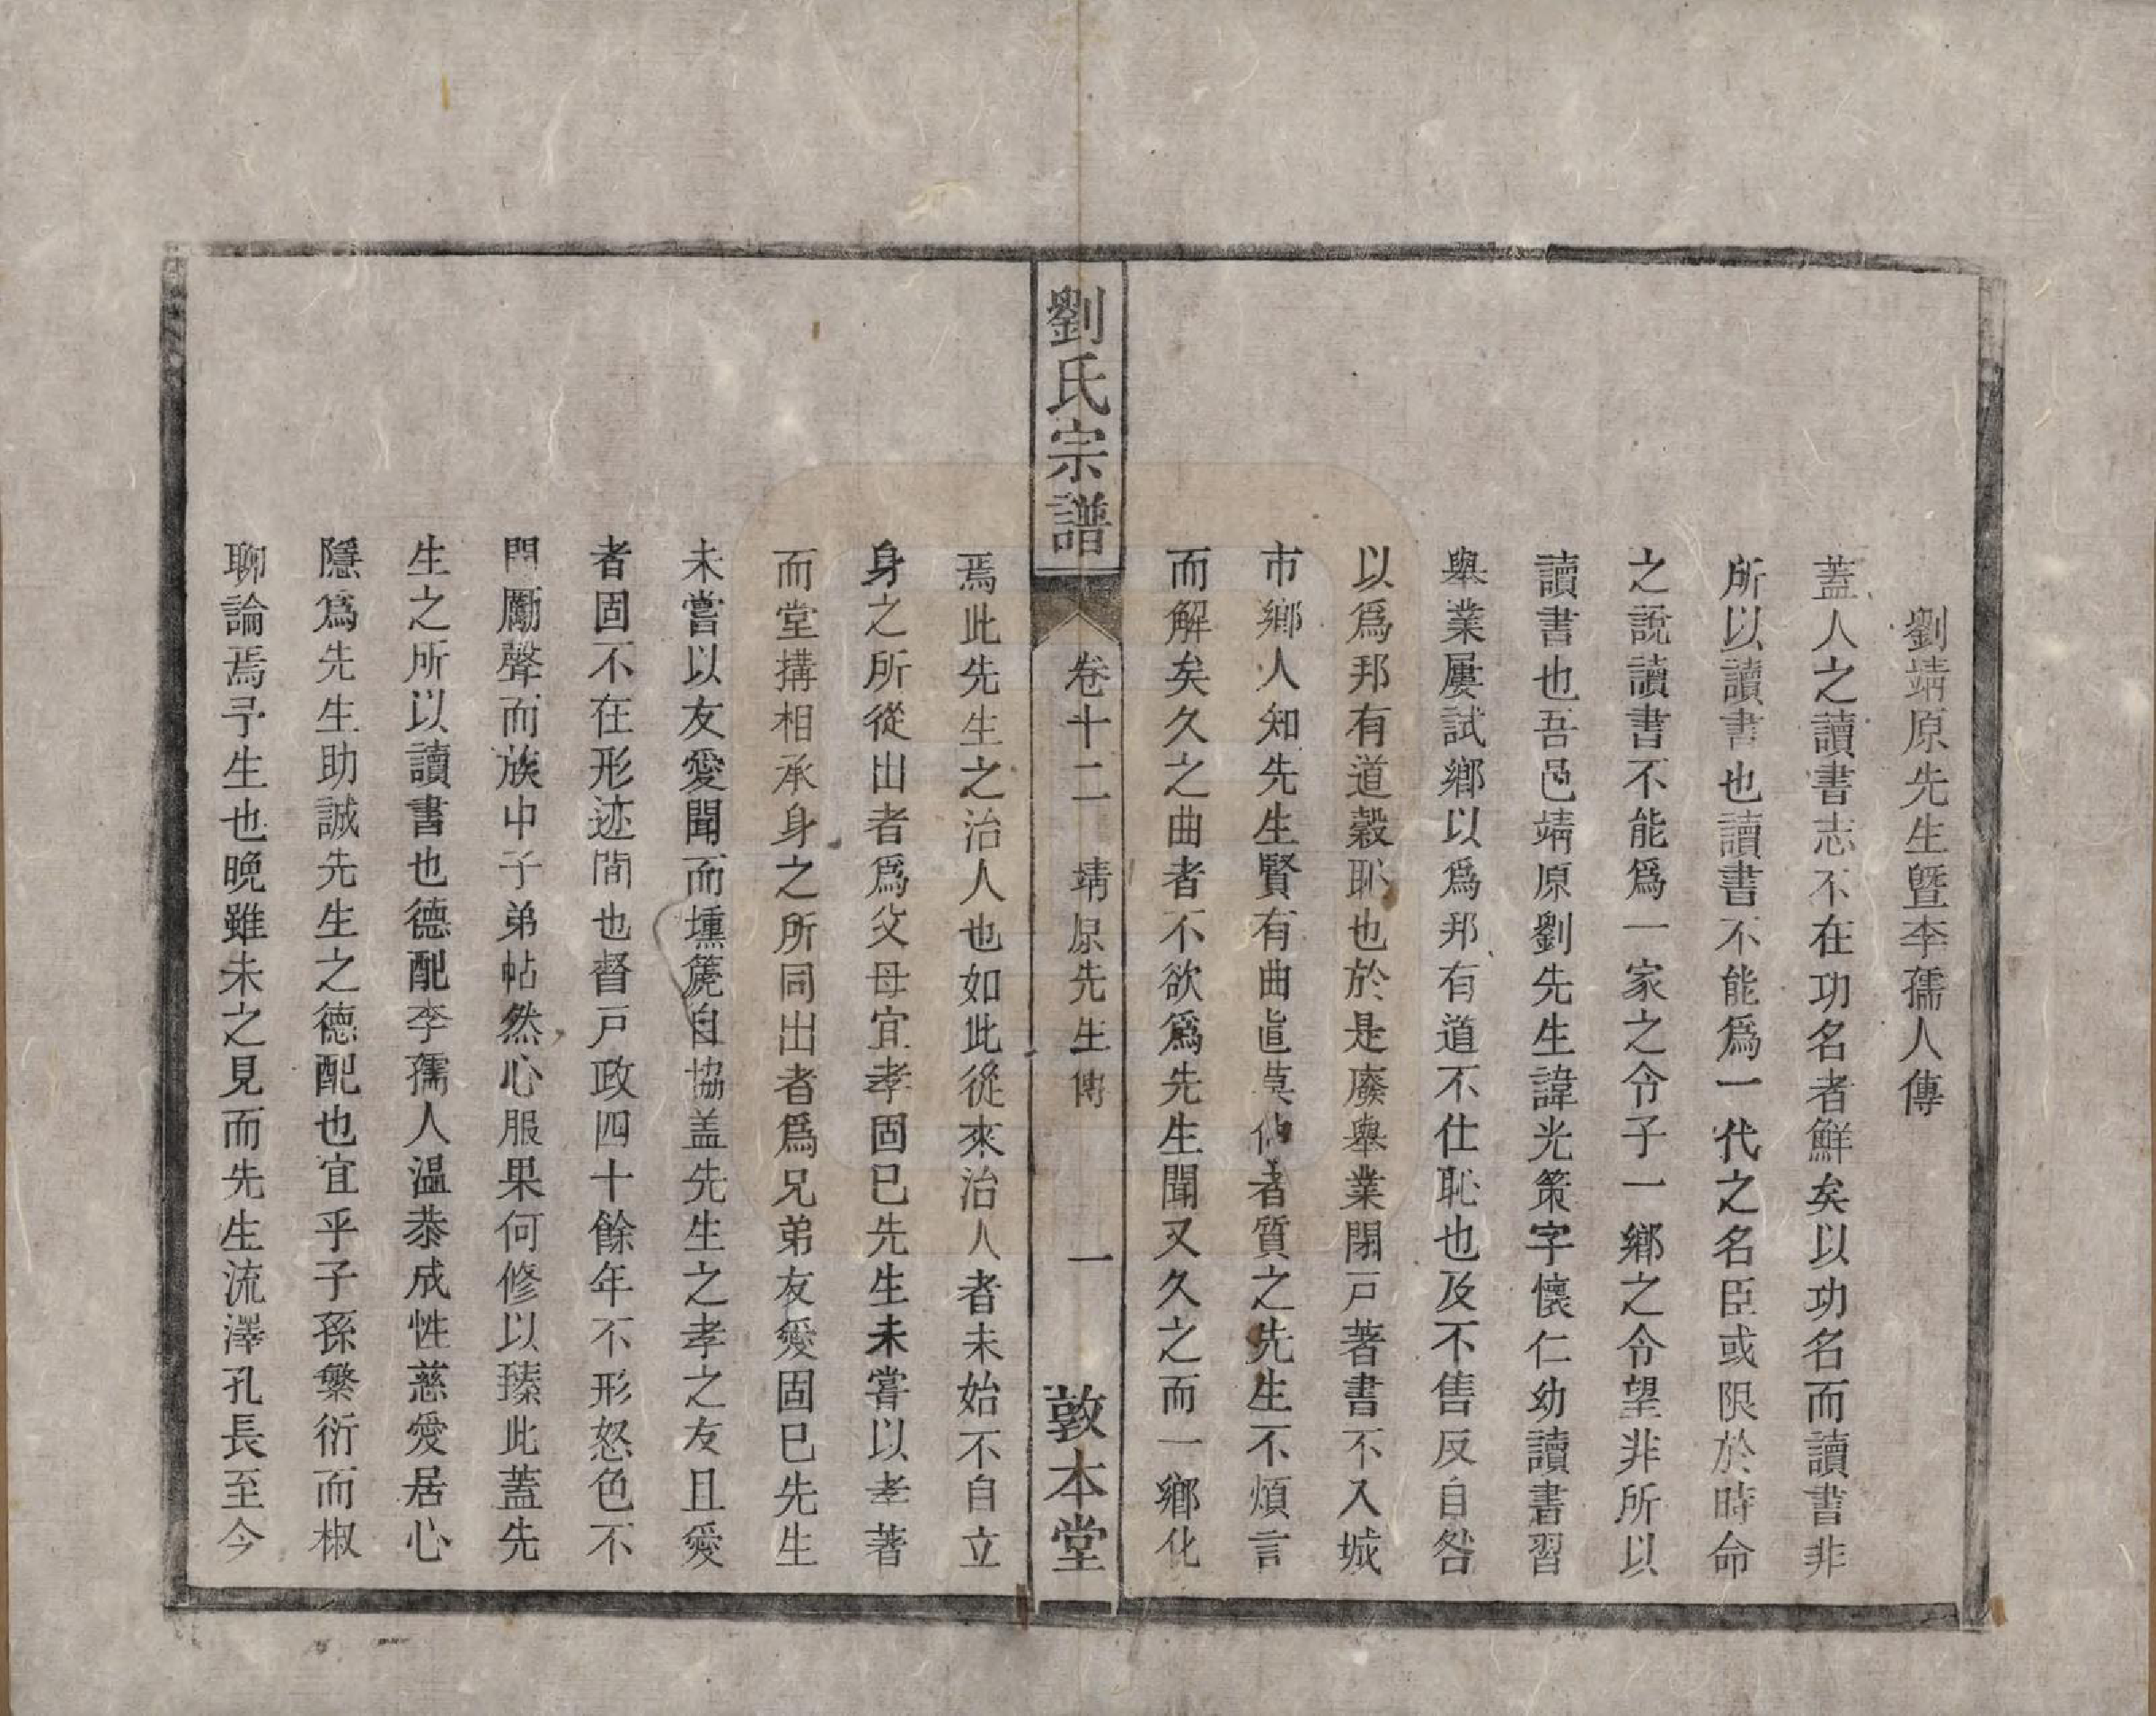 劉靖原先生暨李孺人傳
蓋人之讀書志不在功名者鮮矣以功名而讀書非
所以讀書也讀書不能爲一代之名臣或限於時命
之說讀書不能爲一家之令子一鄉之令望非所以
讀書也吾邑靖原劉先生諱光策字懷仁幼讀書習
舉業屢試鄉以爲邦有道不仕恥也及不售反自咎
以爲邦有道穀恥也於是廢舉業閉戸著書不入城
市鄉人知先生賢有曲直莫伸者質之先生不煩言
而解矣久之曲者不欲爲先生聞又久之而一鄉化
劉氏宗譜 卷十二 靖原先生傳 一 敦本堂
焉此先生之治人也如此從來治人者未始不自立
身之所從出者爲父母宜孝固已先生未嘗以孝著
而堂搆相承身之所同出者爲兄弟友愛固已先生
未嘗以友愛聞而壎篪自協盖先生之孝之友且愛
者固不在形迹間也督戸政四十餘年不形怒色不
問厲聲而族中子弟帖然心服果何修以臻此蓋先
生之所以讀書也德配李孺人溫恭成性慈愛居心
隱爲先生助誠先生之德配也宜乎子孫繁衍而椒
聊論焉予生也晩雖未之見而先生流澤孔長至今